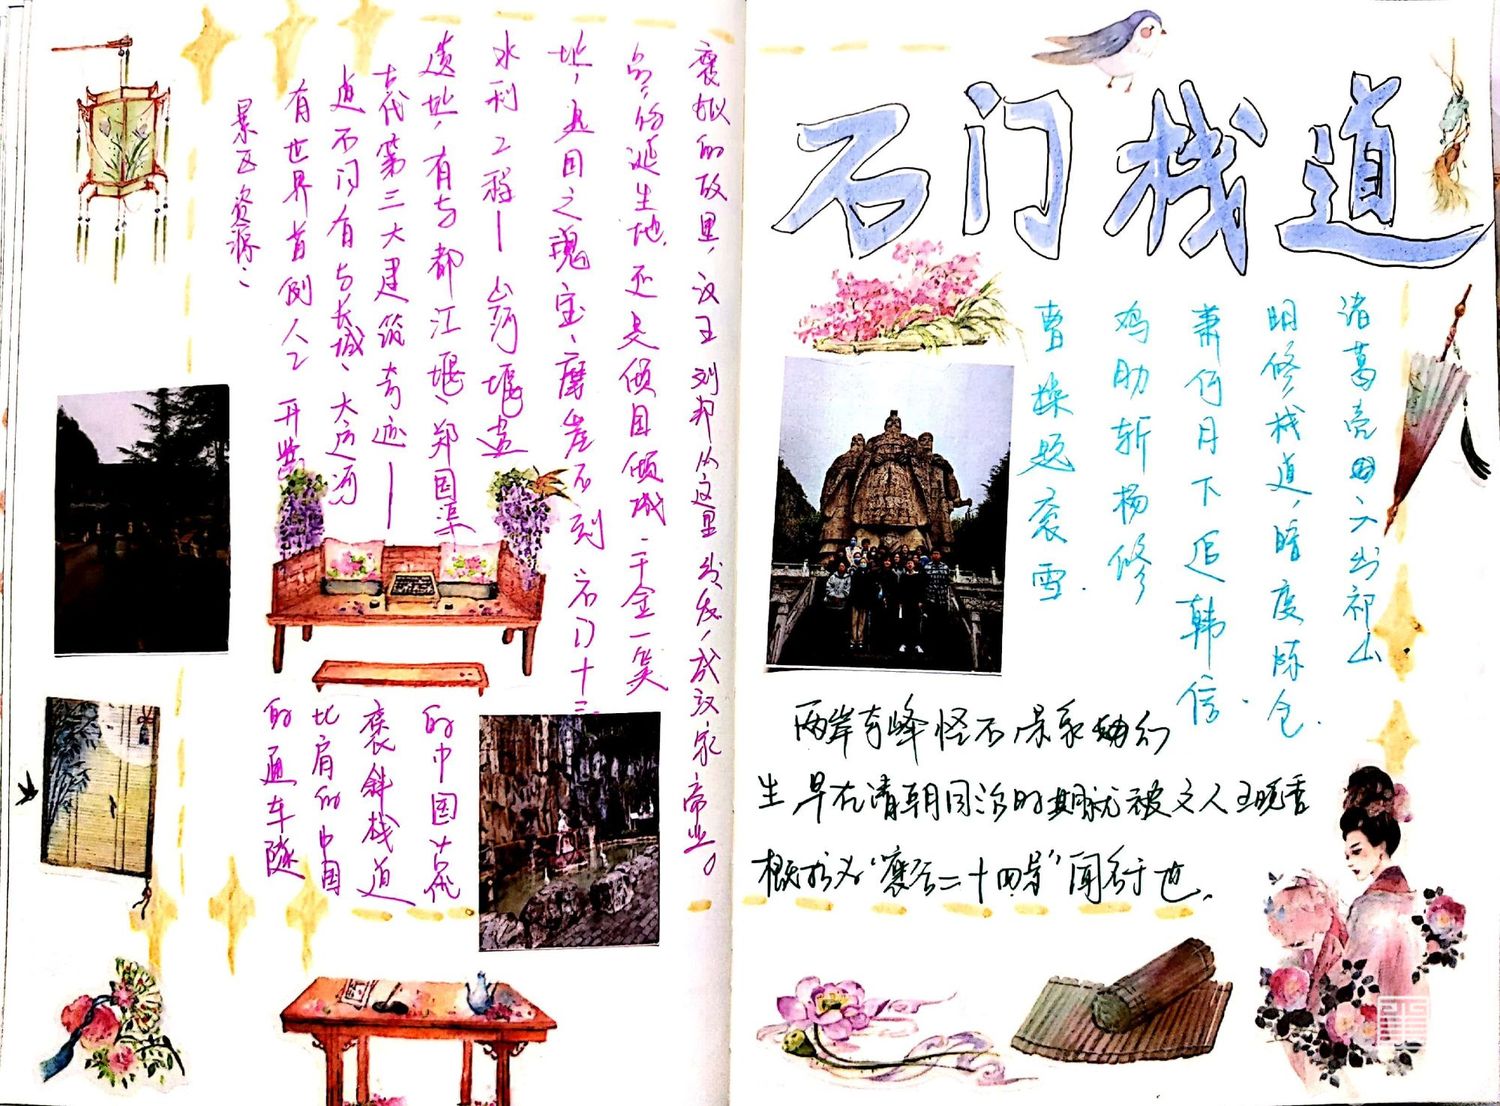 景区资源:
有世界首例人工开凿的通车隧
道石门有与长城、大运河比肩的中国
古代第三大建筑奇迹——褒斜栈道
遗址,有与都江堰、郑国渠的中国古代
水利工程—山河堰遗
址,是国之魂宝、摩崖石刻"石门十三
品"的诞生地,还是倾国倾城、千金一笑
褒姒的故里,汉王刘邦从这里出发,成汉家帝业。
石门栈道
诸葛亮六出祁山
明修栈道,暗度陈仓.
萧何月下追韩信.
鸡肋斩杨修
曹操题衮雪.
两岸奇峰怪石景象幻
生早在清朝同治时期就被文人王晚香
概括为"褒谷二十四景"闻行于世.